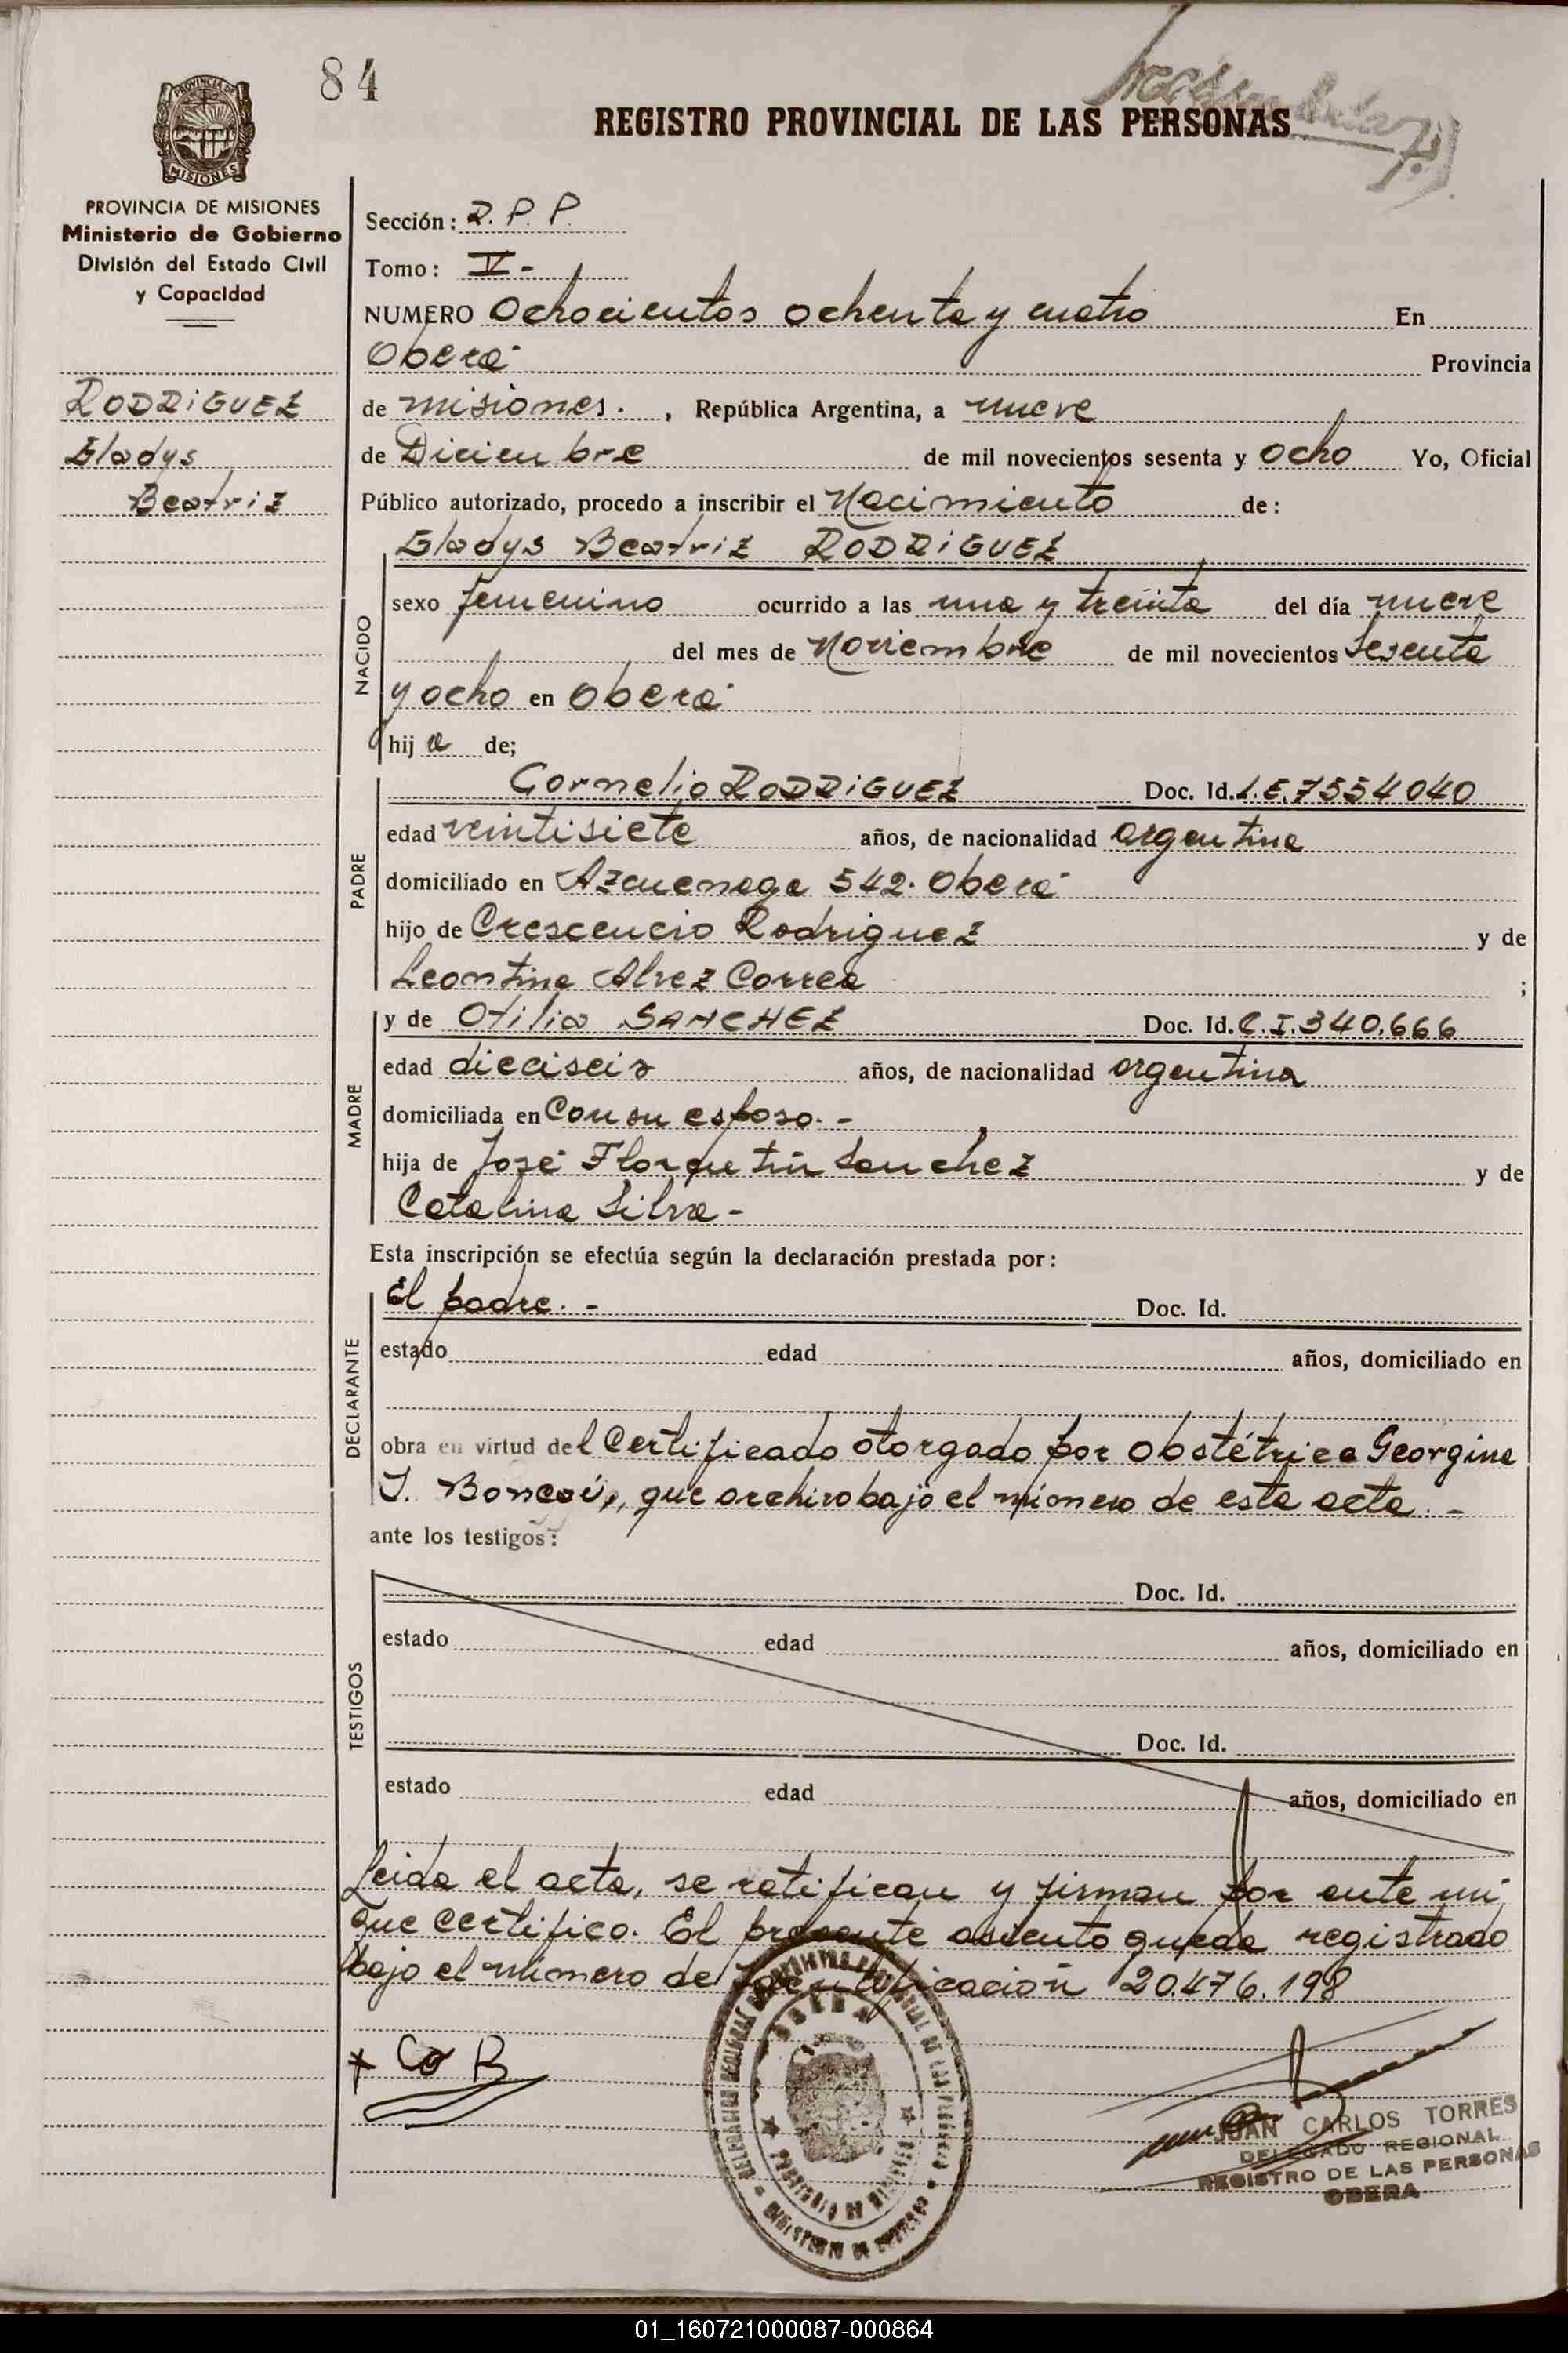 84
REGISTRO PROVINCIAL DE LAS PERSONAS
PROVINCIA DE MISIONES
Ministerio de Gobierno
División del Estado Civil
y Capacidad
RODRIGUEZ
Gladys
Beatriz
Sección: R. P. P.
Tomo: V-
NUMERO Ochocientos ochenta y cuatro En
Oberá Provincia
de misiones. , República Argentina, a nueve
de Diciembre de mil novecientos sesenta y ocho Yo, Oficial
Público autorizado, procedo a inscribir el Nacimiento de:
Gladys Beatriz RODRIGUEZ
NACIDO
sexo femenino ocurrido a las una y treinta del día nueve
del mes de Noviembre de mil novecientos sesenta
y ocho en Oberá
hij a de;
PADRE
Cornelio RODRIGUEZ Doc. Id. L.E. 7554040
edad veintisiete años, de nacionalidad argentina
domiciliado en Azcuenaga 542. Oberá
hijo de Crescencio Rodriguez y de
Leontina Alvez Correa ;
MADRE
y de Otilia SANCHEZ Doc. Id. C.I. 340.666
edad dieciseis años, de nacionalidad argentina
domiciliada en Con su esposo. -
hija de José Florentin Sanchez y de
Catalina Silva -
Esta inscripción se efectúa según la declaración prestada por:
DECLARANTE
El padre. - Doc. Id.
estado edad años, domiciliado en
obra en virtud del Certificado otorgado por obstétrica Georgina
J. que archivo bajo el número de esta acta. -
ante los testigos:
TESTIGOS
Doc. Id.
estado edad años, domiciliado en
Doc. Id.
estado edad años, domiciliado en
Leida el acta, se ratifican y firman por ante mi
que certifico. El presente asiento queda registrado
bajo el número de Identificación 20.476.198
JUAN CARLOS TORRES
DELEGADO REGIONAL
REGISTRO DE LAS PERSONAS
OBERA
01_160721000087-000864